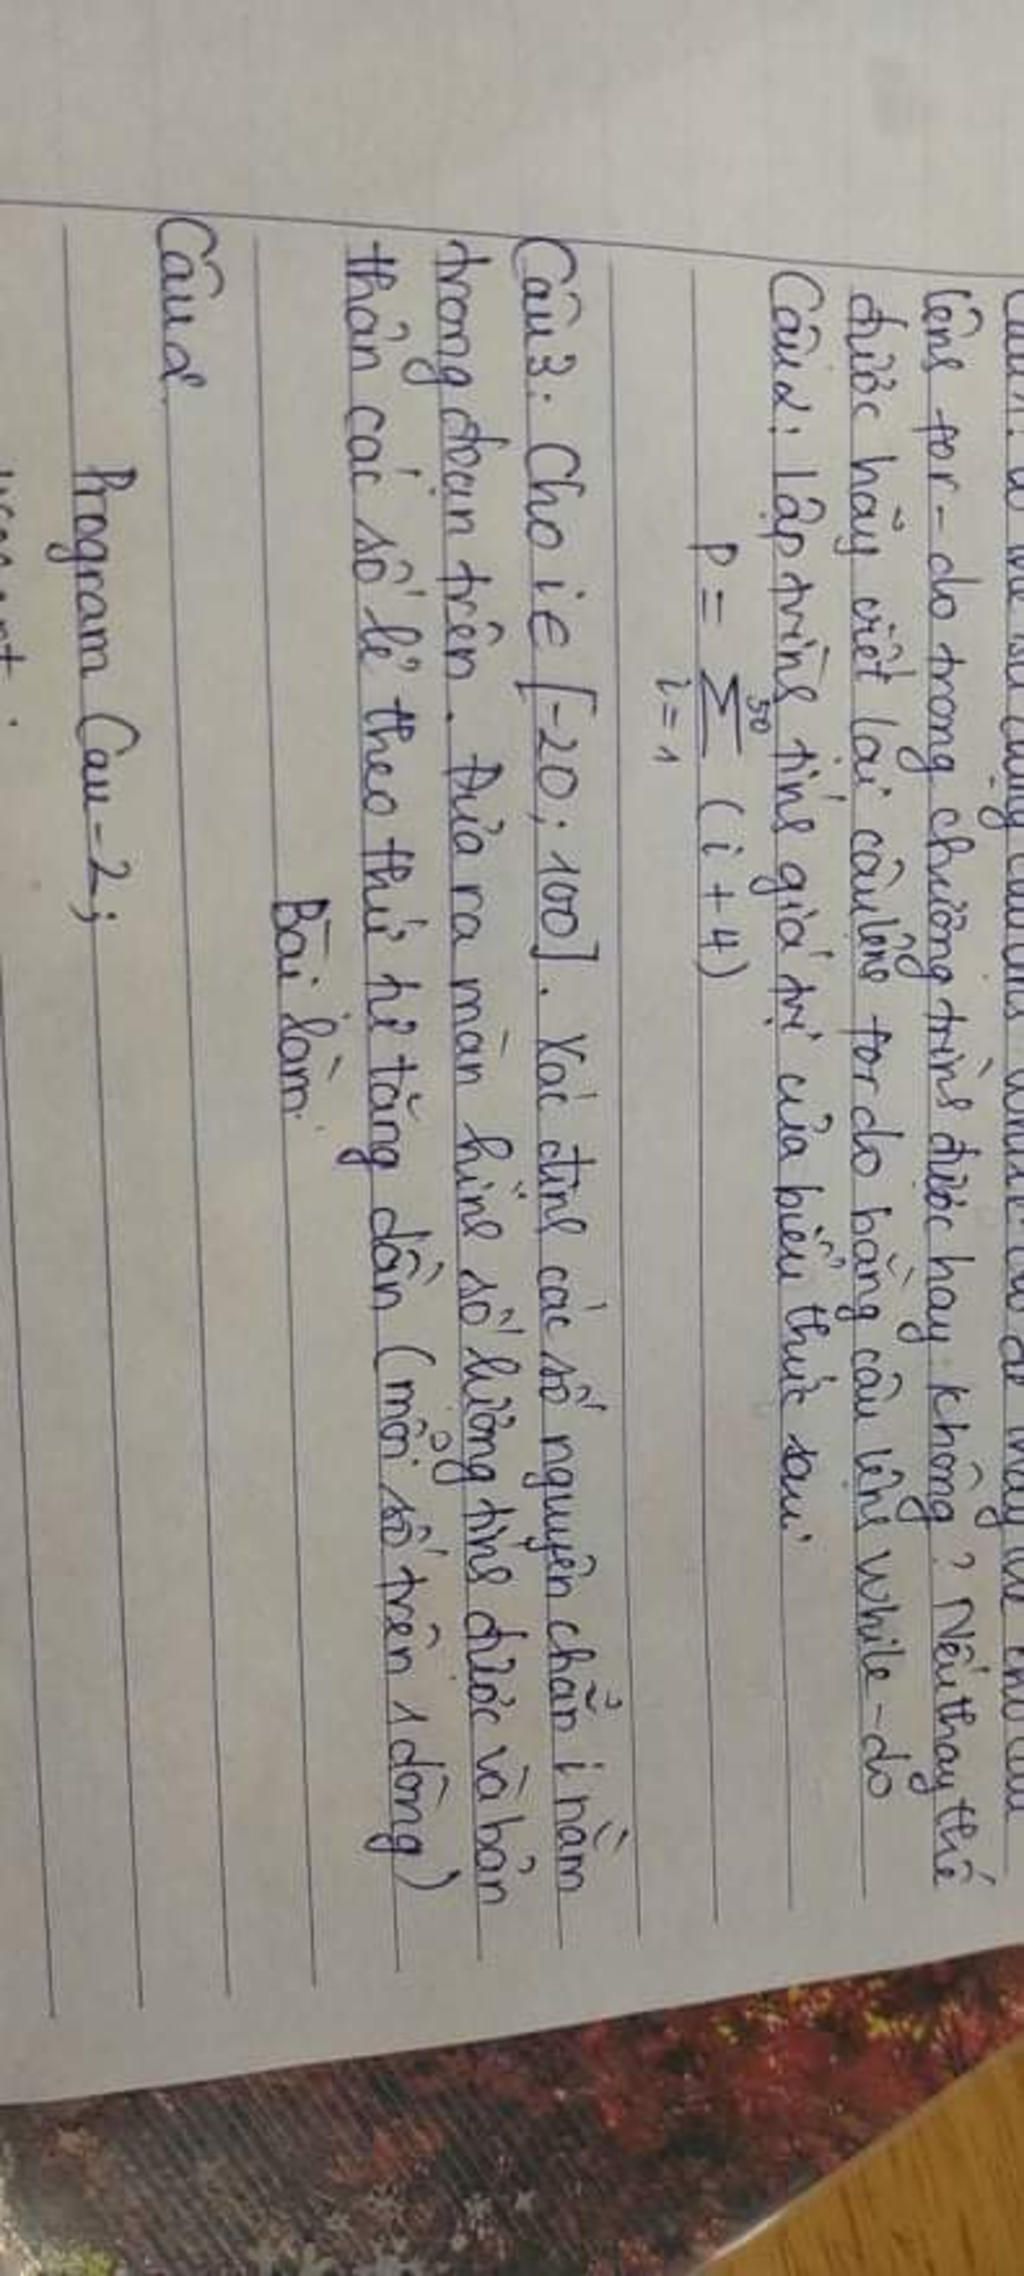 lệnh for-do trong chương trình được hay không? Nếu thay thế
được hãy viết lại câu lệnh for do bằng câu lệnh while-do
Câu 2: Lập trình tính giá trị của biểu thức sau:
P = \sum_{i=1}^{50} (i+4)
Câu 3: Cho i ∈ [-20; 100]. Xác định các số nguyên chẵn i nằm
trong đoạn trên. Đưa ra màn hình số lượng tính được và bản
thân các số lẻ theo thứ tự tăng dần (mỗi số trên 1 dòng)
Bài làm.
Câu 2.
Program Cau-2;